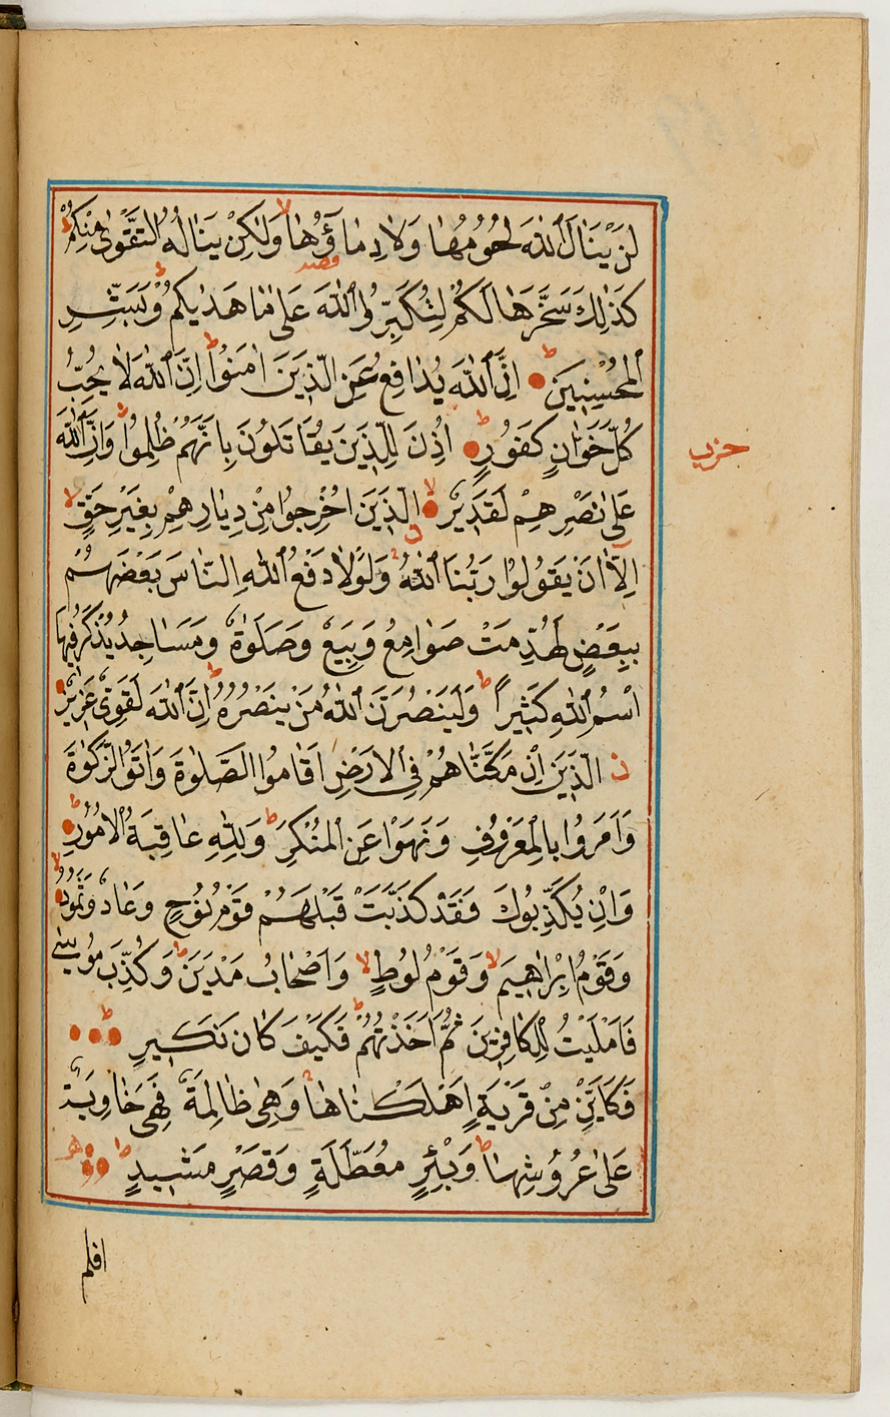 لَنْ يَنَالَ اللّٰهَ لُحُومُهَا وَلَا دِمَاؤُهَا وَلٰكِنْ يَنَالُهُ التَّقْوٰى مِنْكُمْ
كَذٰلِكَ سَخَّرَهَا لَكُمْ لِتُكَبِّرُوا اللّٰهَ عَلٰى مَا هَدٰيكُمْ وَبَشِّرِ
الْمُحْسِنِينَ اِنَّ اللّٰهَ يُدَافِعُ عَنِ الَّذِينَ اٰمَنُوا اِنَّ اللّٰهَ لَا يُحِبُّ
كُلَّ خَوَّانٍ كَفُورٍ اُذِنَ لِلَّذِينَ يُقَاتَلُونَ بِاَنَّهُمْ ظُلِمُوا وَاِنَّ اللّٰهَ
حزب
عَلٰى نَصْرِهِمْ لَقَدِيرٌ الَّذِينَ اُخْرِجُوا مِنْ دِيَارِهِمْ بِغَيْرِ حَقٍّ
اِلَّا اَنْ يَقُولُوا رَبُّنَا اللّٰهُ وَلَوْلَا دَفْعُ اللّٰهِ النَّاسَ بَعْضَهُمْ
بِبَعْضٍ لَهُدِّمَتْ صَوَامِعُ وَبِيَعٌ وَصَلَوٰةٌ وَمَسَاجِدُ يُذْكَرُ فِيهَا
اسْمُ اللّٰهِ كَثِيرًا وَلَيَنْصُرَنَّ اللّٰهُ مَنْ يَنْصُرُهُ اِنَّ اللّٰهَ لَقَوِىٌّ عَزِيزٌ
الَّذِينَ اِنْ مَكَّنَّاهُمْ فِى الْاَرْضِ اَقَامُوا الصَّلٰوةَ وَاٰتَوُا الزَّكٰوةَ
وَاَمَرُوا بِالْمَعْرُوفِ وَنَهَوْا عَنِ الْمُنْكَرِ وَلِلّٰهِ عَاقِبَةُ الْاُمُورِ
وَاِنْ يُكَذِّبُوكَ فَقَدْ كَذَّبَتْ قَبْلَهُمْ قَوْمُ نُوحٍ وَعَادٌ وَثَمُودُ
وَقَوْمُ اِبْرٰاهِيمَ وَقَوْمُ لُوطٍ وَاَصْحَابُ مَدْيَنَ وَكُذِّبَ مُوسٰى
فَاَمْلَيْتُ لِلْكَافِرِينَ ثُمَّ اَخَذْتُهُمْ فَكَيْفَ كَانَ نَكِيرِ
فَكَاَيِّنْ مِنْ قَرْيَةٍ اَهْلَكْنَاهَا وَهِىَ ظَالِمَةٌ فَهِىَ خَاوِيَةٌ
عَلٰى عُرُوشِهَا وَبِئْرٍ مُعَطَّلَةٍ وَقَصْرٍ مَشِيدٍ
افلم